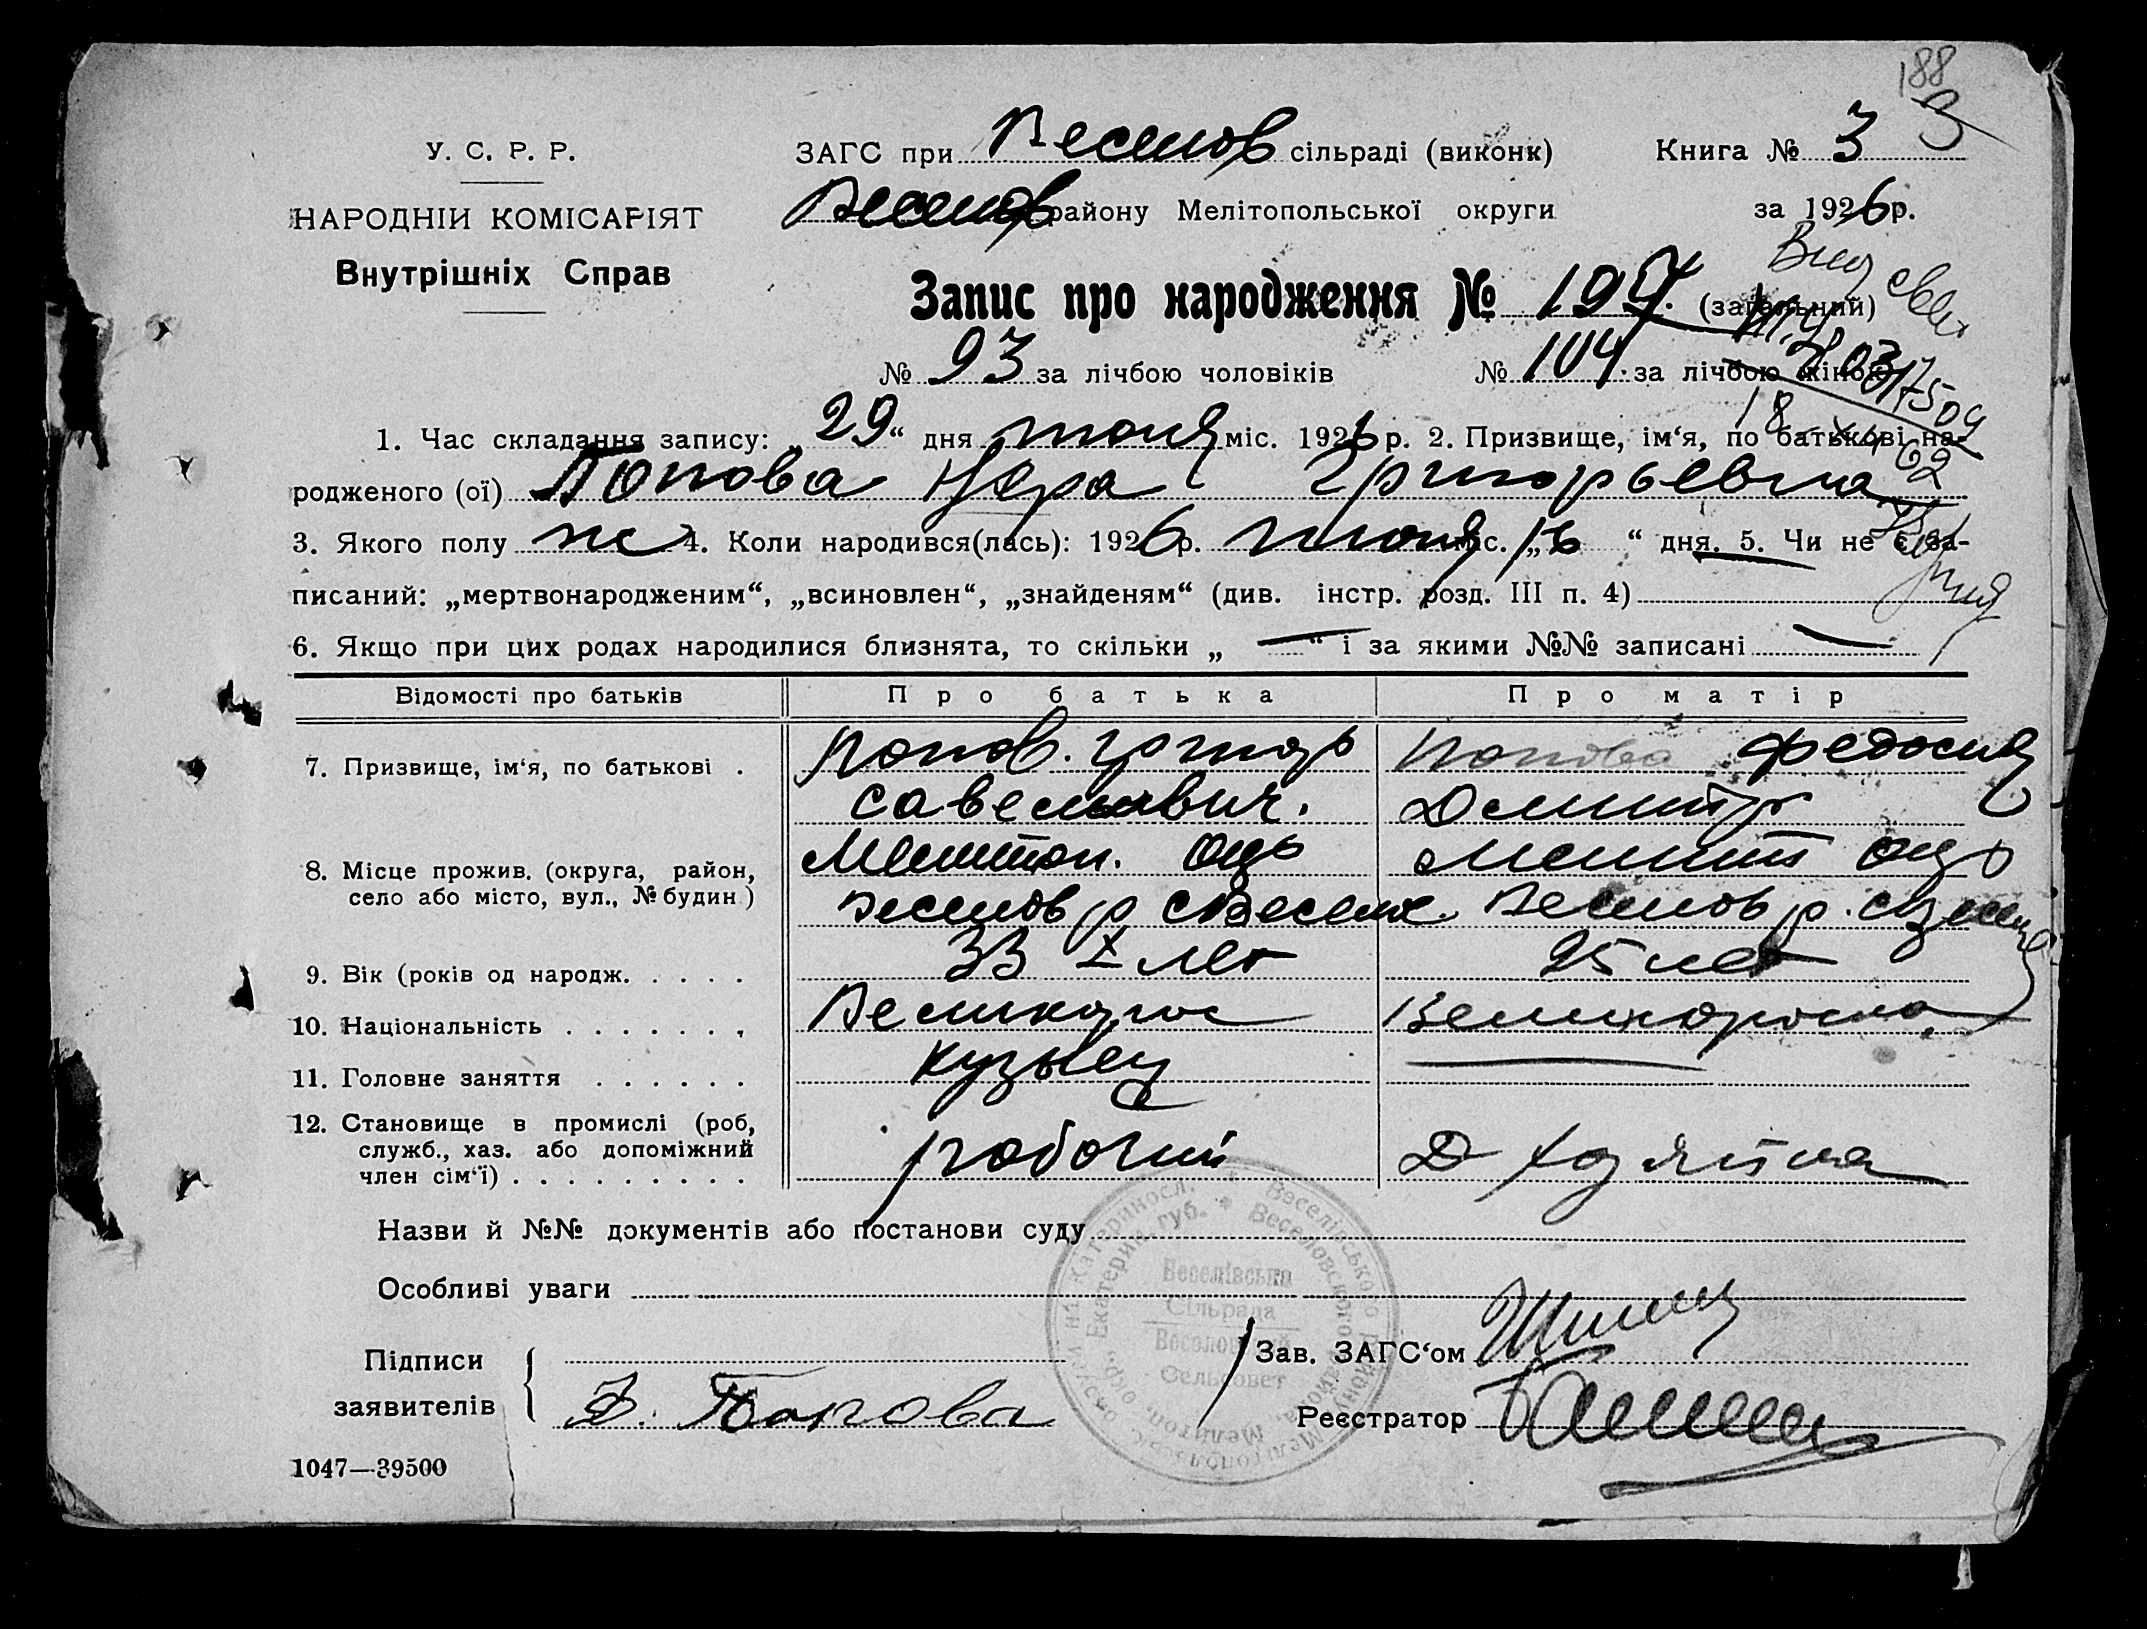 188
3
У. С. Р. Р.
ЗАГС при Веселов сільраді (виконк)
Книга № 3
НАРОДНІЙ КОМІСАРІЯТ
Веселов району Мелітопольської округи
за 1926р.
Внутрішніх Справ
Запис про народження № 197 (загальний)
№ 93 за лічбою чоловіків № 104 за лічбою жінок
1. Час складання запису: „ 29 “ дня июня міс. 1926 р. 2. Призвище, ім‘я, по батькові на-
родженого (ої) Попова Вера Григорьевна
3. Якого полу ж 4. Коли народився(лась): 1926 р. июня міс. „ 16 “ дня. 5. Чи не є за-
писаний: „мертвонародженим“, „всиновлен“, „знайденям“ (див. інстр. розд. III п. 4)
6. Якщо при цих родах народилися близнята, то скільки „ — “ і за якими №№ записані —
Відомості про батьків
Про батька
Про матір
7. Призвище, ім‘я, по батькові .
Попов. Григорь
Попова Федосия
савельевич.
Дмитр
8. Місце прожив. (округа, район,
село або місто, вул., № будин.)
Мелитоп. окр
Мелит окр
Веселов р с Весел.
Веселов р. с
9. Вік (років од народж. . . . .
33 лет
25 лет
10. Національність . . . . . . .
Великорос
Великороска
11. Головне заняття . . . . . .
кузнец
12. Становище в промислі (роб,
служб., хаз. або допоміжний
член сім‘ї) . . . . . . . . .
рабочий
Д хозяйка
Назви й №№ документів або постанови суду
Особливі уваги
Веселівська
Сільрада
Веселовский
Сельсовет
Підписи
заявителів
Ф. Попова
Зав. ЗАГС‘ом
Реєстратор
1047—39500